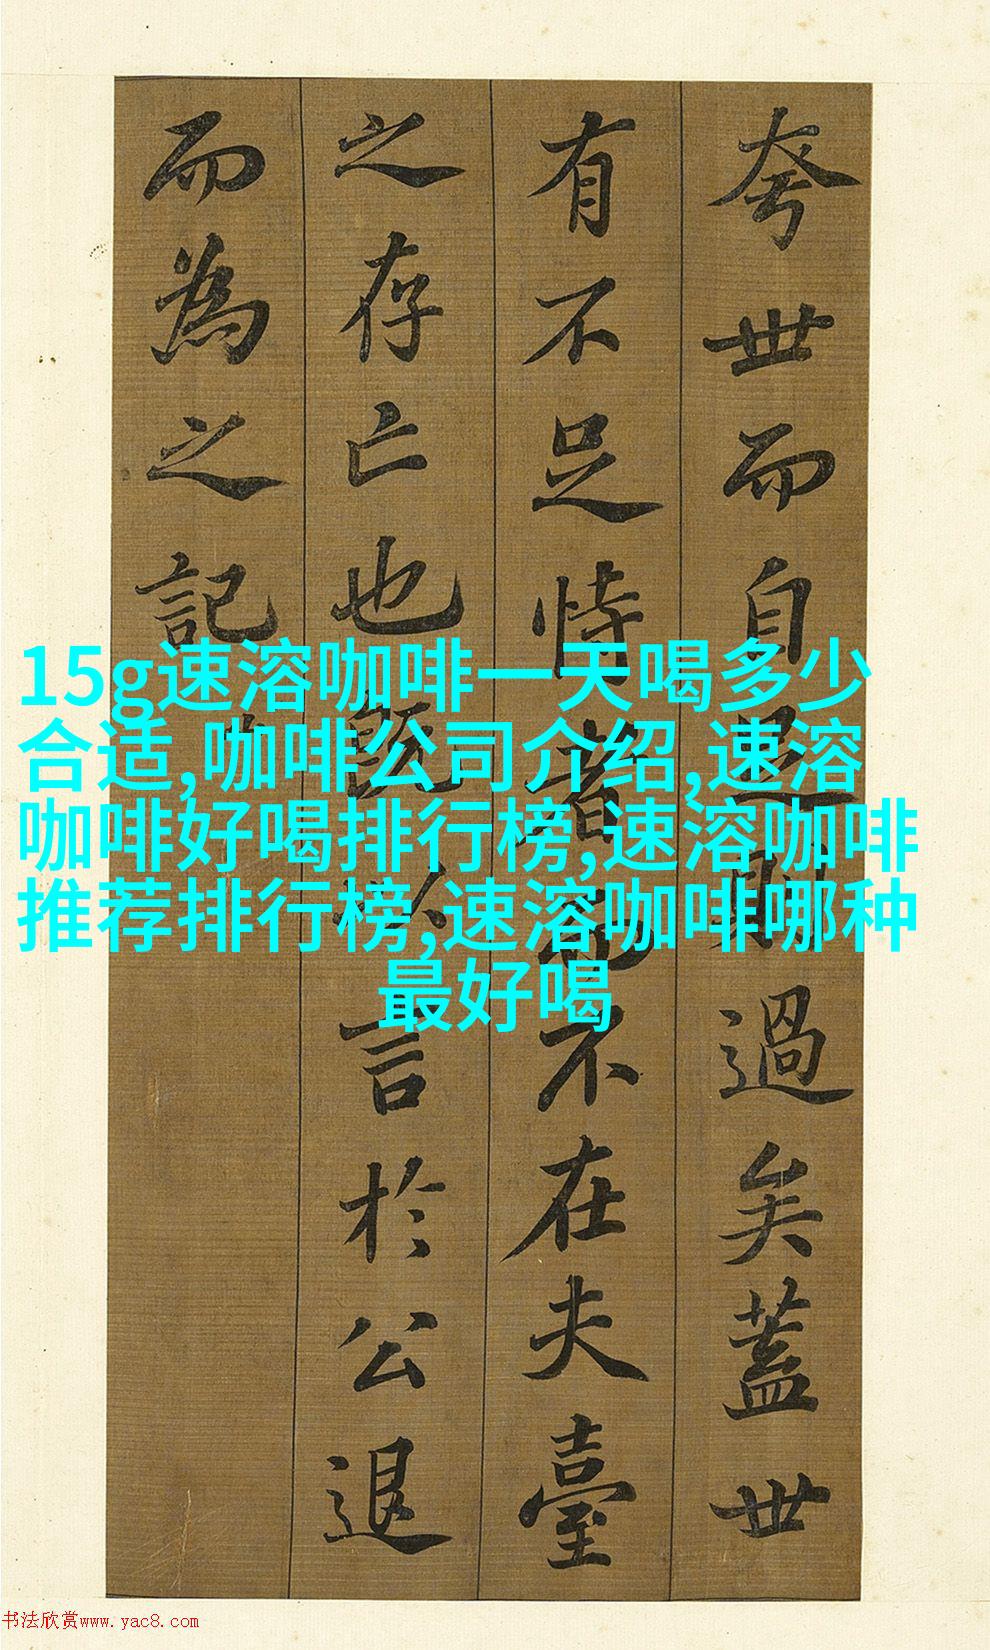 夸世而自足則過矣蓋世
有不足恃者而不在夫臺
之存亡也既以言於公退
而為之記
15g速溶咖啡一天喝多少
合适,咖啡公司介绍,速溶
咖啡好喝排行榜,速溶咖啡
推荐排行榜,速溶咖啡哪种
最好喝
书法欣赏www.yac8.com